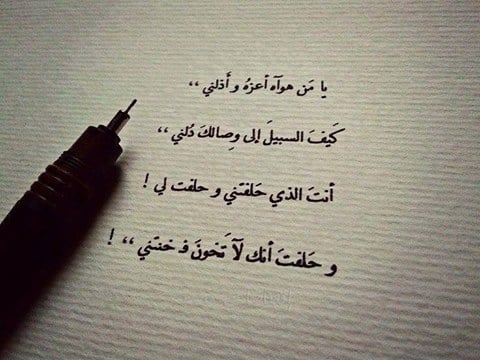 يا مَن هوآه أعزهُ و أَذلني ،،
كَيفَ السبيلَ إلى وِصالكَ دُلني ،،
أنتَ الذي حَلفتَني و حلفت لي !
و حَلفتَ أنك لآ تَخونَ فـ خنتَني ،، !